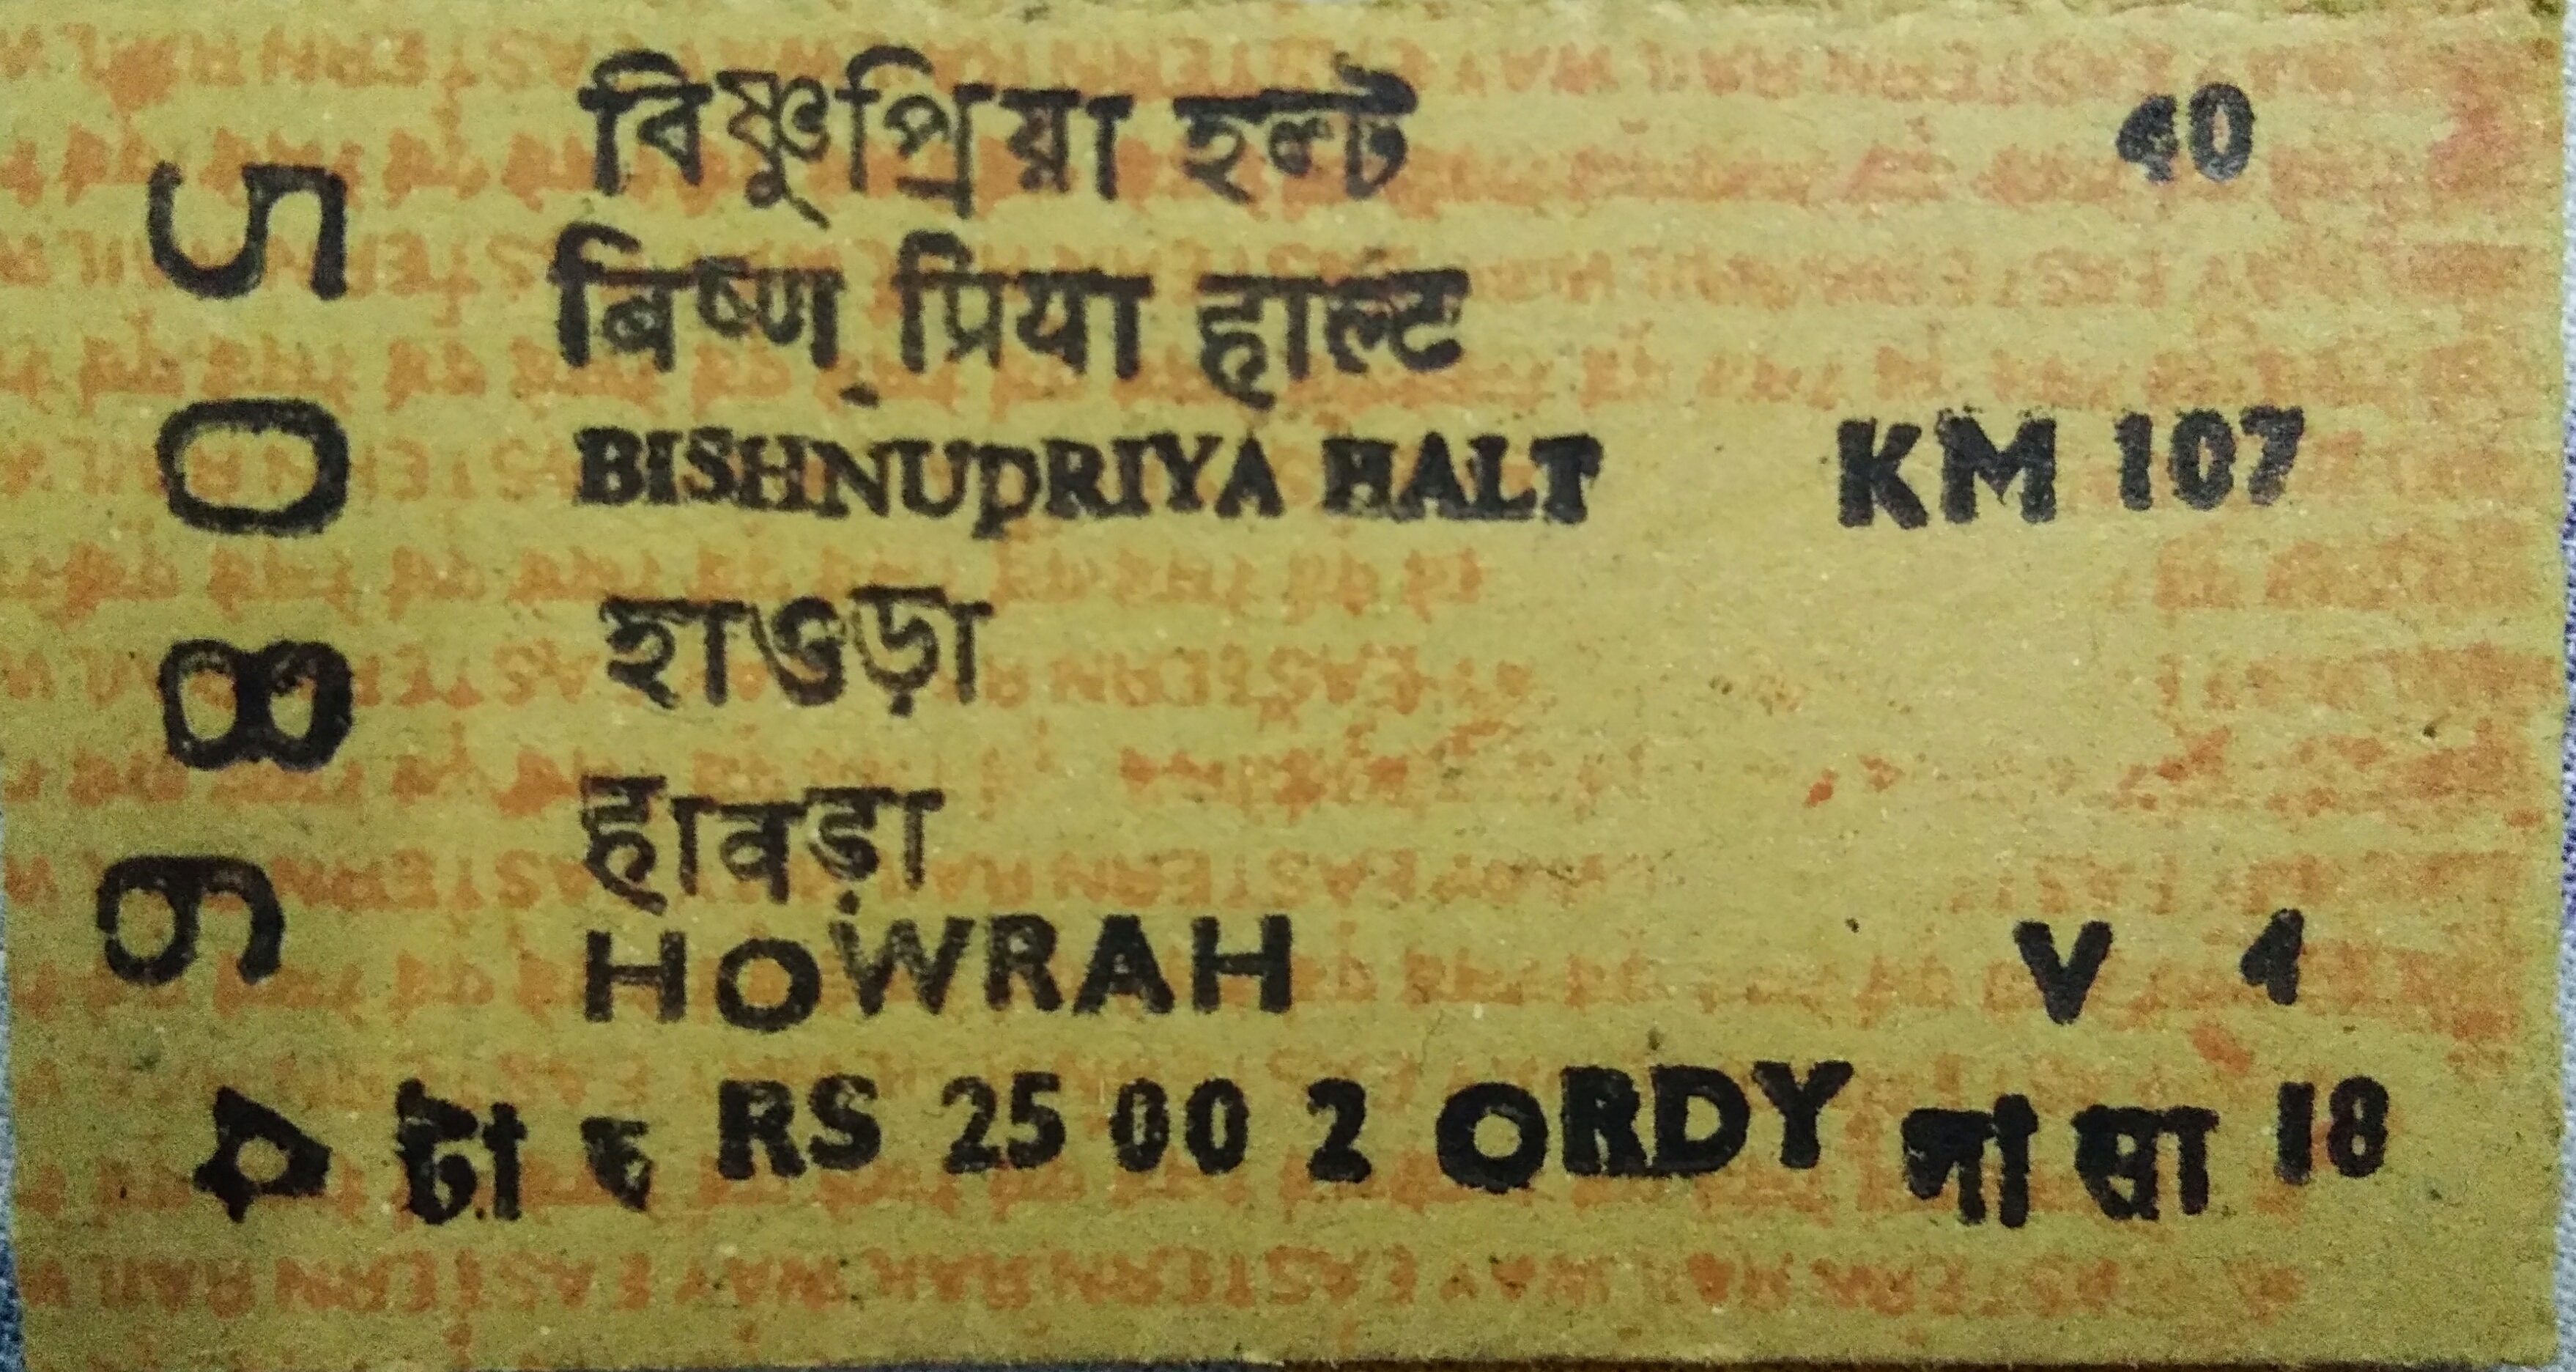 বিষ্ণুপ্রিয়া হল্ট 40
बिष्णु प्रिया हाल्ट
BISHNUPRIYA HALT KM 107
হাওড়া
हावड़ा
HOWRAH V 4
টা RS 25 00 2 ORDY 18
5089